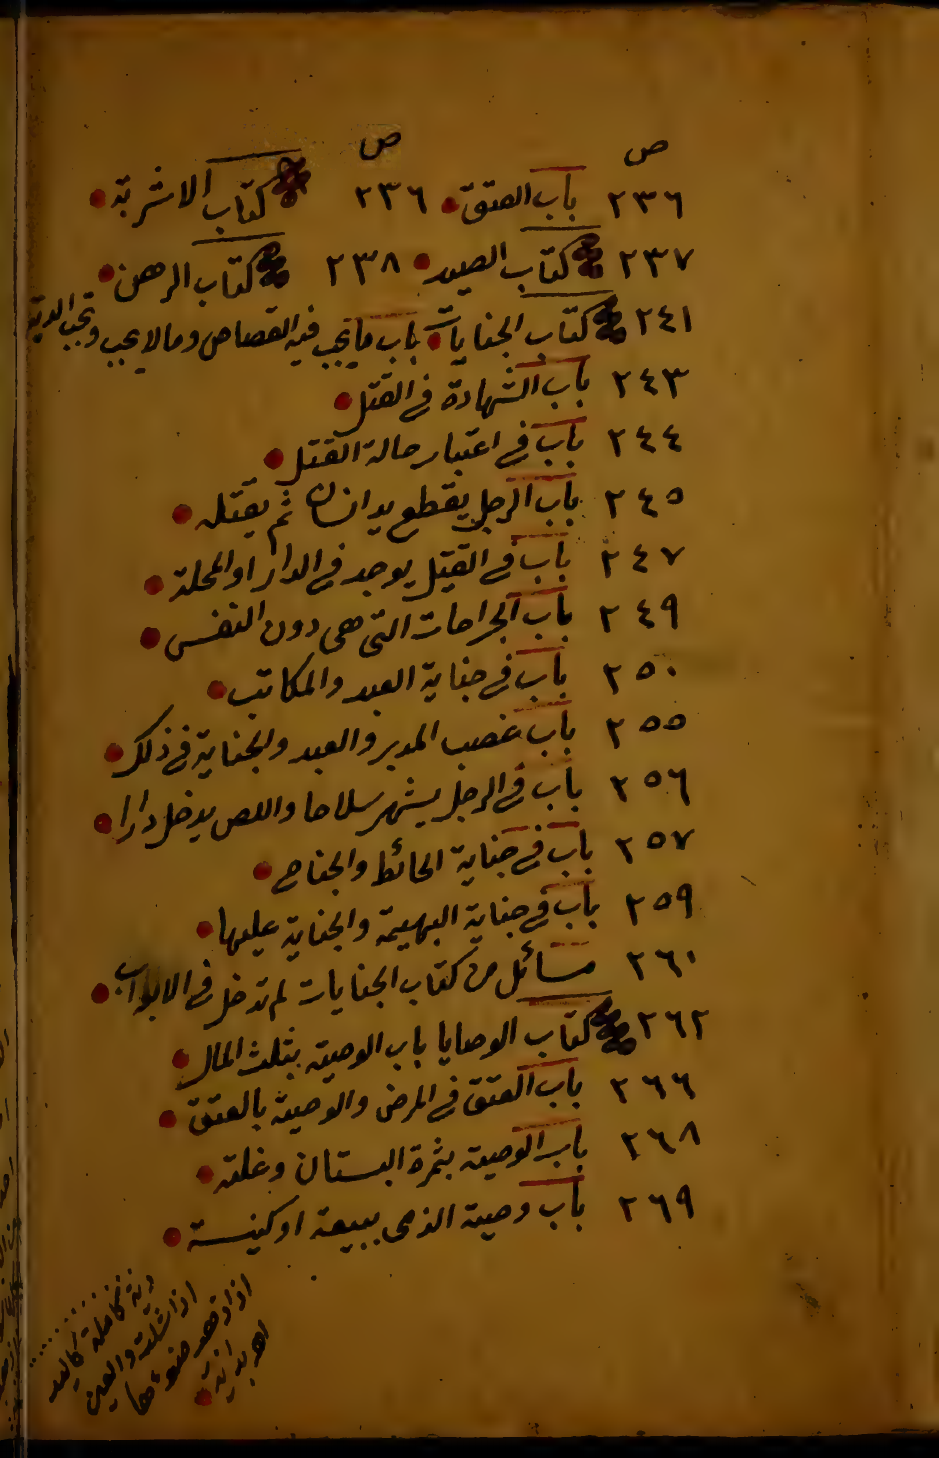 ص ص
٢٣٦ باب العتق ٢٣٦ كتاب الاشربة
٢٣٧ كتاب الصيد ٢٣٨ كتاب الرهن
٢٤١ كتاب الجنايات باب ما يجب فيه القصاص وما لا يجب وتجب الدية
٢٤٣ باب الشهادة في القتل
٢٤٤ باب في اعتبار حالة القتل
٢٤٥ باب الرجل يقطع يد انسان ثم يقتله
٢٤٧ باب في القتيل يوجد في الدار او المحلة
٢٤٩ باب الجراحات التي هي دون النفس
٢٥٠ باب في جناية العبد والمكاتب
٢٥٥ باب غصب المدبر والعبد والجناية في ذلك
٢٥٦ باب في الرجل يشهر سلاحا واللص يدخل دارا
٢٥٧ باب في جناية الحائط والجناح
٢٥٩ باب في جناية البهيمة والجناية عليها
٢٦٠ مسائل من كتاب الجنايات لم تدخل في الابواب
٢٦٢ كتاب الوصايا باب الوصية بثلث المال
٢٦٦ باب العتق في المرض والوصية بالعتق
٢٦٨ باب الوصية بثمرة البستان وغلته
٢٦٩ باب وصية الذمي ببيعة او كنيسة
دية كاملة كاليد
اذا شلت والعين
اذا ذهب ضوءها
اهـ بداية